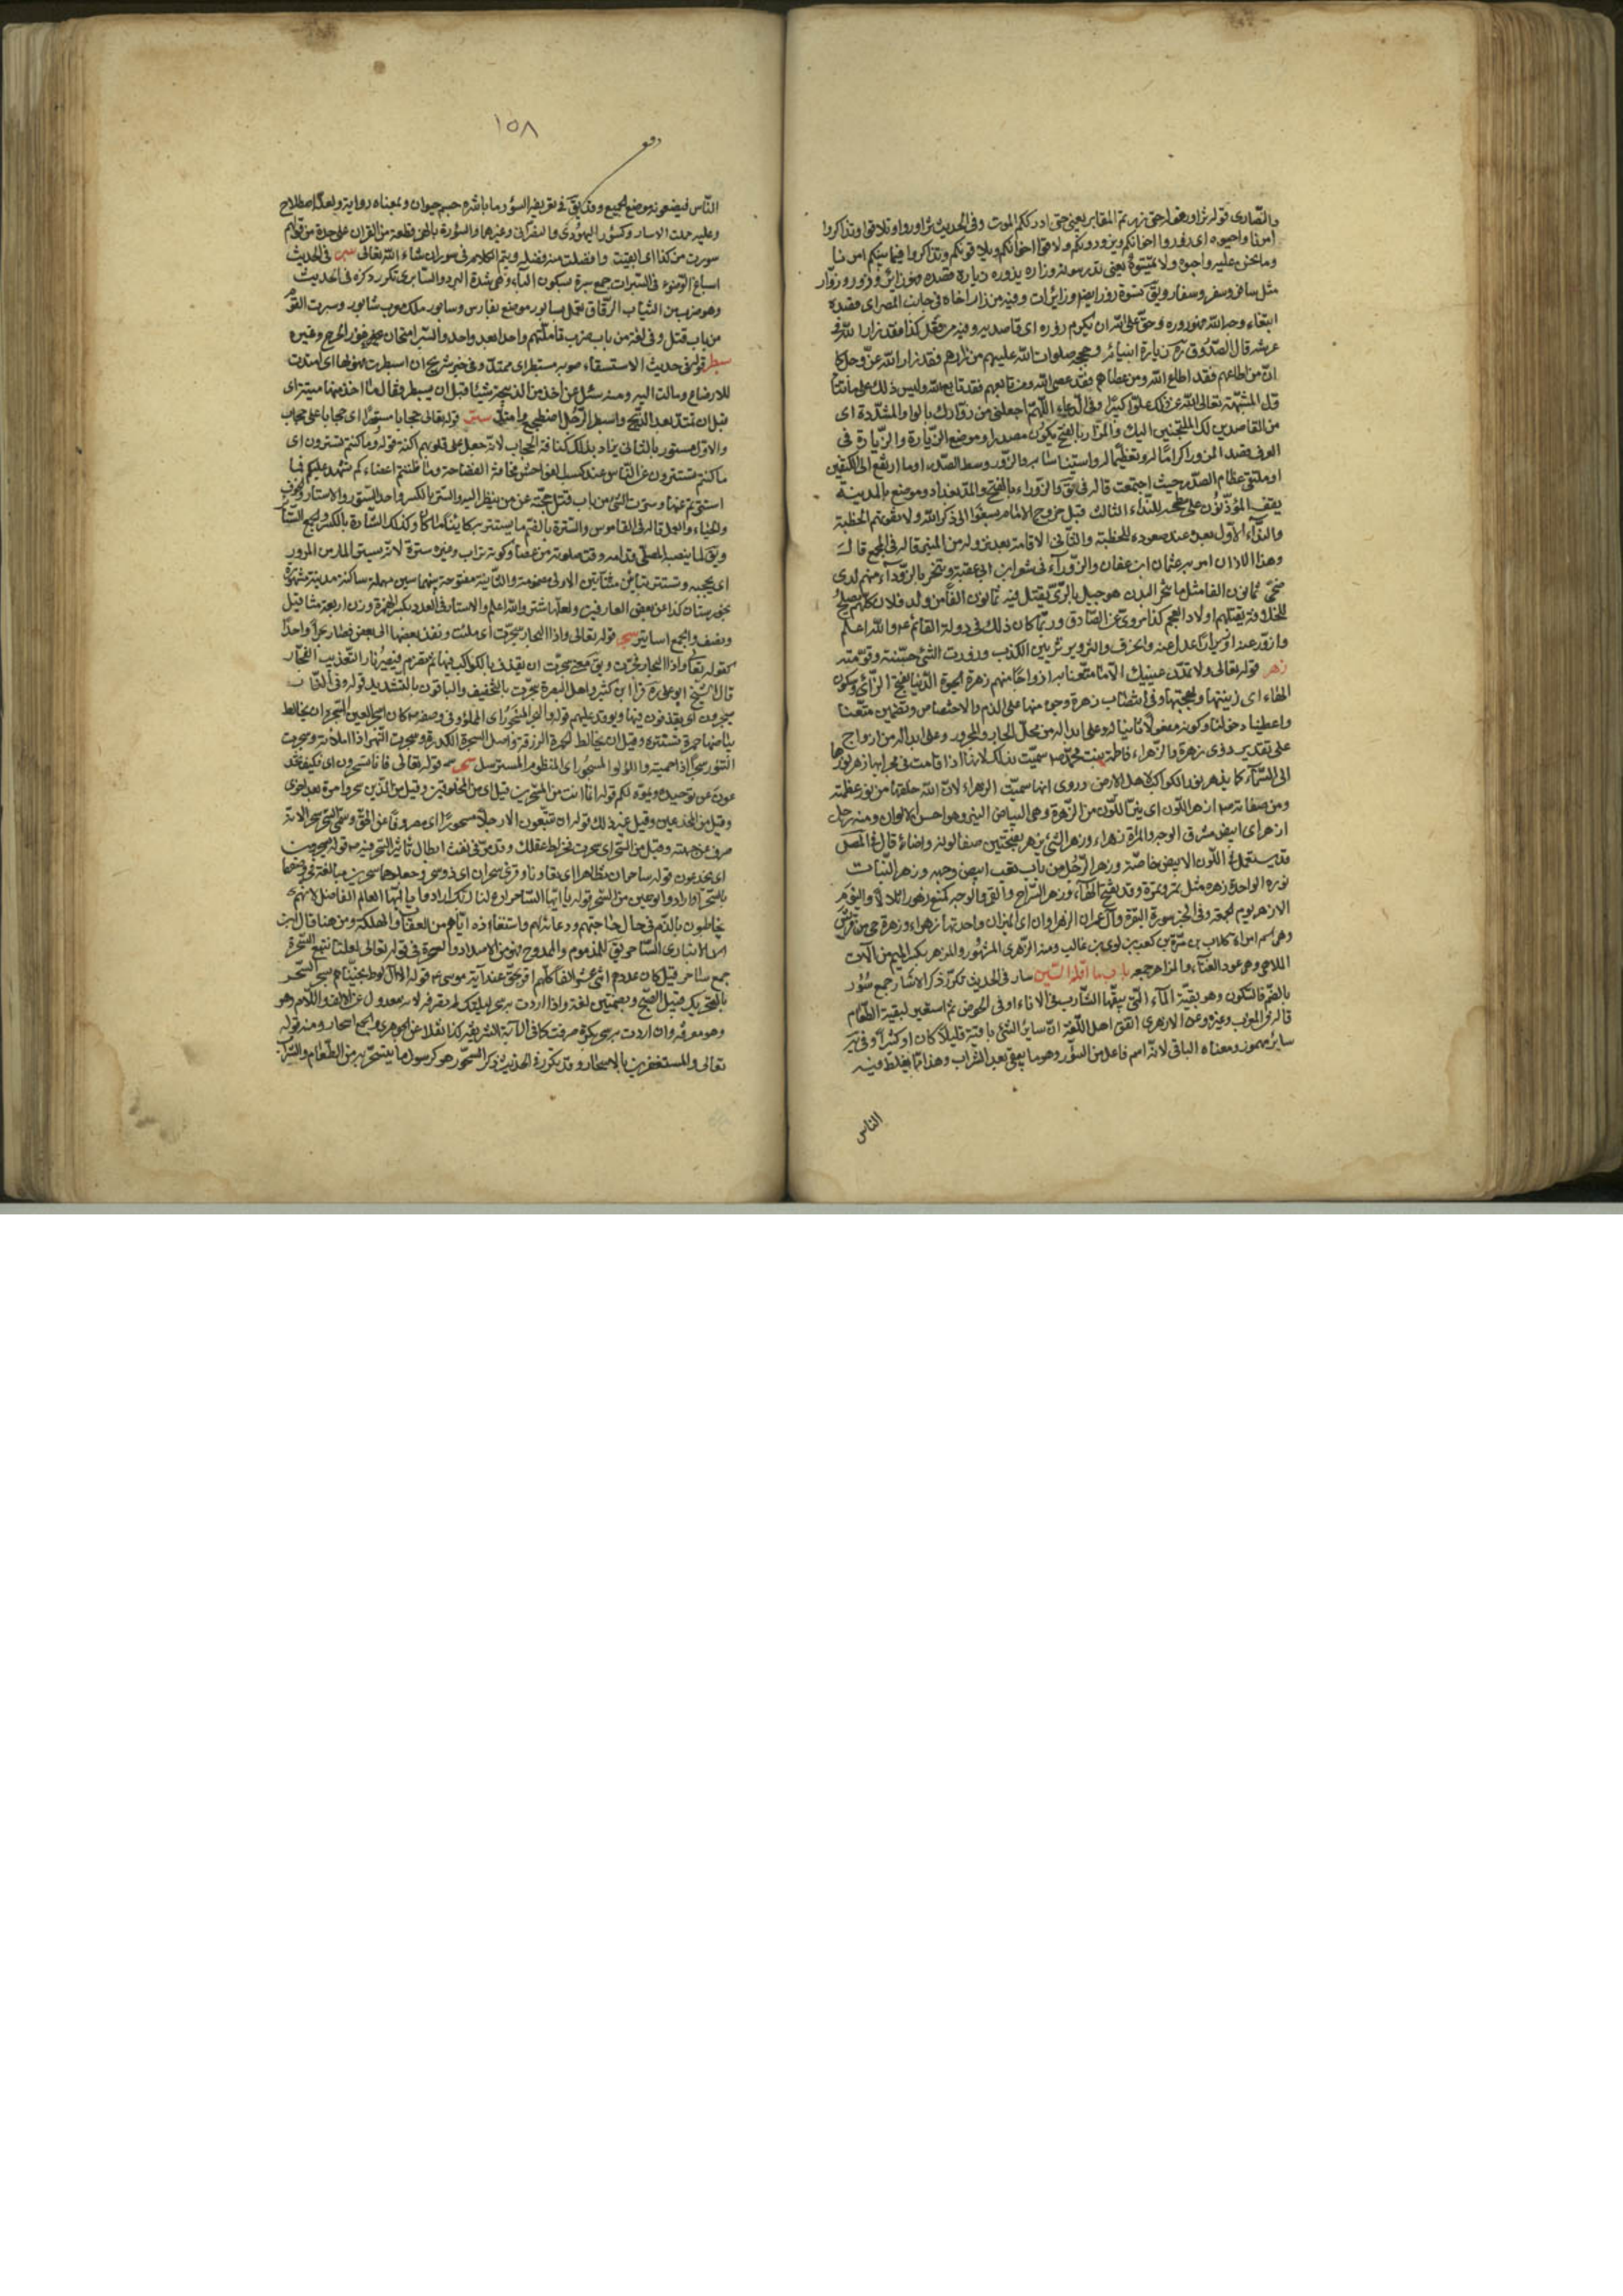 والنصارى قوله تزاور قوله حتى زرتم المقابر يعنى حتى ادرككم الموت وفى الحديث تزاوروا وتلاقوا وتذاكروا
امرنا واحيوه اى زوروا اخوانكم ويزورونكم ولاقوا اخوانكم ويلاقونكم وتذاكروا فيما بينكم امرنا
وما نحن عليه واحيوه ولا تميتوه يعنى تدرسوه وزاره يزوره زيارة قصده فهو زائر وزور وزوار
مثل سافر وسفر وسفار ونسوة زور ايضا وزائرات وفيه من زار اخاه فى جانب المصر اى قصده
ابتغاء وجه الله فهو زوره وحق على الله ان يكرم زوره اى قاصديه وفيه من فعل كذا فقد زار الله فى
عرشه قال الصدوق ره زيارة انبيائه وحججه صلوات الله عليهم من زارهم فقد زار الله عز وجل كما
ان من اطاعهم فقد اطاع الله ومن عصاهم فقد عصى الله ومن تابعهم فقد تابع الله وليس ذلك على ما تأوله
المشبهة تعالى الله عن ذلك علوا كبيرا وفى الدعاء اللهم اجعلنى من زوارك بالواو المشددة اى
من القاصدين لك الملتجئين اليك والمزار بالفتح يكون مصدرا وموضع الزيارة والزيارة فى
العرف قصد المزور اكراما له وتعظيما له واستيناسا به والزور وسط الصدر او ما ارتفع الى الكتفين
او ملتقى عظام الصدر حيث اجتمعت قاله فى ق والزوراء بالفتح والمد بغداد وموضع بالمدينة
يقف المؤذنون على سطحه للنداء الثالث قبل خروج الامام ليسعوا الى ذكر الله ولا تفوتهم الخطبة
والنداء الاول بعده عند صعوده للخطبة والثانى الاقامة بعد نزوله من المنبر قاله فى المجمع قال
وهذا الاذان امر به عثمان ابن عفان والزوراء فى شعر ابن ابى عقبة وينحر بالزوراء منهم لدى
ضحى ثمانون الفا مثل ما تنحر البدن هو جبل بالرى يقتل فيه ثمانون الفا من ولد فلان كلهم يصلح
للخلافة يقتلهم اولاد العجم كذا مروى عن الصادق وربما كان ذلك فى دولة القائم عه والله اعلم
وازور عنه ازورارا عدل عنه وانحرف والتزوير تزيين الكذب وزورت الشئ حسنته وقومته
زهر قوله تعالى ولا تمدن عينيك الى ما متعنا به ازواجا منهم زهرة الحيوة الدنيا بفتح الزاى وسكون
الهاء اى زينتها وبهجتها وفى انتصاب زهرة وجوه منها على الذم والاختصاص وتضمين متعنا
واعطينا وخولنا وكونه مفعولا ثانيا له وعلى ابداله من محل الجار والمجرور وعلى ابداله من ازواج
على تقدير ذوى زهرة والزهراء فاطمة بنت محمد صه سميت بذلك لانها اذا قامت فى محرابها زهر نورها
الى السماء كما يزهر نور الكواكب لاهل الارض وروى انها سميت الزهراء لان الله خلقها من نور عظمته
ومن صفاته صه ازهر اللون اى نير اللون من الزهرة وهى البياض النير وهو احسن الالوان ومنه رجل
ازهر اى ابيض مشرق الوجه والمرأة زهراء وزهر الشئ يزهر بفتحتين صفا لونه واضاء قال فى المص
قد يستعمل فى اللون الابيض خاصة وزهر الرجل من باب تعب ابيض وجهه وزهر النبات
نوره الواحدة زهرة مثل تمر وتمرة وقد يفتح الهاء وزهر السراج والقمر والوجه كمنع زهورا تلالأ واليوم
الازهر يوم الجمعة وفى الخبر سورة البقرة وآل عمران الزهراوان اى المنيران واحدتها زهراء وزهرة حى من قريش
وهى اسم امرأة كلاب بن مرة بن كعب بن لوى بن غالب ومنه الزهرى المشهور والمزهر بكسر الميم من آلات
الملاهى وهى عود الغناء والمزاهر جمعه باب ما اوله السين سار فى الحديث تكرر ذكر الاسئار جمع سؤر
بالضم فالسكون وهو بقية الماء التى يبقيها الشارب فى الاناء او فى الحوض ثم استعير لبقية الطعام
قاله فى المغرب وغيره وعن الازهرى اتفق اهل اللغة ان سائر الشئ باقيه قليلا كان او كثيرا وفى ير
سائر مهموز ومعناه الباقى لانه اسم فاعل من السؤر وهو ما يبقى بعد الشراب وهذا مما يغلط فيه
الناس
١٥٨
وقف
الناس فيضعونه موضع الجميع وقد يق فى تعريف السؤر ما باشره جسم حيوان وبمعناه رواية ولعله اصطلاح
وعليه حملت الاسار وكسؤر اليهودى والنصرانى وغيرهما والسورة بالضم قطعة من القران على حدة من قولهم
سورت من كذا اى ابقيت وافضلت منه فضلة ويتم الكلام فى سور ان شاء الله تعالى سبر فى الحديث
اسباغ الوضوء فى السبرات جمع سبرة بسكون الباء وهى شدة البرد والسابرى تكرر ذكره فى الحديث
وهو ضرب من الثياب الرقاق تعمل بسابور موضع بفارس وسابور ملك معرب شاپور وسبرت القوم
من باب قتل وفى لغة من باب ضرب تأملتهم واحدا بعد واحد والسبر امتحان غور الجرح وغيره
سبطر قوله فى حديث الاستسقاء صوبه مسبطر اى ممتد وفى خبر شريح ان اسبطرت فهو لها اى امتدت
للارضاع ومالت اليه ومنه سئل عن اخذ من الذبيحة شيئا قبل ان يسبطر فقال ما اخذ منها ميتة اى
قبل ان تمتد بعد الذبح واسبطر الرجل اضطجع وامتد ستر قوله تعالى حجابا مستورا اى حجابا على حجاب
والاول مستور بالثانى يراد بذلك كثافة الحجاب لانه جعل على قلوبهم اكنة قوله وما كنتم تستترون اى
ما كنتم تستترون عن الناس عند كسب الفواحش مخافة الفضاحة وما ظننتم اعضاءكم تشهد عليكم فما
استترتم عنها وسترت الشئ من باب قتل حجبته عن من ينظر اليه والستر بالكسر واحد الستور والاستار والخوف
والحياء والعمل قاله فى القاموس والسترة بالضم ما يستتر به كائنا ما كان وكذلك الستارة بالكسر والجمع الستائر
ويق لما ينصبه المصلى قدامه وقت صلوته من عصا وكومة تراب وغيره سترة لانه يستر المار من المرور
اى يحجبه وتستر بتائين مثناتين الاولى مضمومة والثانية مفتوحة بينهما سين مهملة ساكنة مدينة مشهورة
بخوزستان كذا عن بعض العارفين ولعلها شتر والله اعلم والاستار فى العدد بكسر الهمزة وزن اربعة مثاقيل
ونصف والجمع اساتير سجر قوله تعالى واذا البحار سجرت اى ملئت ونفذ بعضها الى بعض فصار بحرا واحدا
كقوله تعالى واذا البحار فجرت ويق معنى سجرت ان يقذف بالكواكب فيها ثم تضرم فيصير نارا لتعذيب الفجار
قال الشيخ ابو على ره قرأ ابن كثير واهل البصرة سجرت بالتخفيف والباقون بالتشديد قوله وفى النار
يسجرون اى يقذفون فيها ويوقد عليهم قوله والبحر المسجور اى المملؤ وفى وصفه صه كان اسجر العين السجر ان يخالط
بياضها حمرة تستتره وقيل ان يخالط الحمرة الزرقة واصل السجرة الكدرة وسجرت النهر اذا املأته وسجرت
التنور سجرا اذا احميته واللؤلؤ المسجور اى المنظوم المسترسل سحر قوله تعالى فانى تسحرون اى فكيف تخد
عون عن توحيده ويموه لكم قوله انما انت من المسحرين قيل اى من المخلوقين وقيل من الذين سحروا مرة بعد اخرى
وقيل من المخدعين وقيل غير ذلك قوله ان تتبعون الا رجلا مسحورا اى مصروفا عن الحق وسمى السحر سحرا لانه
صرف عن جهته وقيل من السحر اى سحرت فخولط عقلك وقد مر فى نفث ابطال تأثير السحر فيه صه قوله يسحرون
اى يخدعون قوله ساحران تظاهرا اى تعاونا وقرئ سحران اى ذو سحر وجعلوهما سحرين مبالغة فى وصفهما
بالسحر او ارادوا نوعين من السحر قوله يا ايها الساحر ادع لنا ربك ارادوا يا ايها العالم الفاضل لانهم
يخاطبون بالذم فى حال حاجتهم ودعائه لهم واستنقاذه اياهم من العذاب والهلكة ومن هنا قال ابن
الانبارى الساحر يق للمذموم والممدوح فهو من الاضداد والسحرة فى قوله تعالى لعلنا نتبع السحرة
جمع ساحر قيل كان عددهم اثنى عشر الفا كلهم اقر بحق عند آية موسى عه قوله الا آل لوط نجيناهم بسحر السحر
بالتحريك قبيل الصبح وبضمتين لغة واذا اردت به سحر ليلتك لم تصرفه لانه معدول عن الالف واللام وهو
وهو معرفة وان اردت به سحر بكرة صرفته كما فى الآية الشريفة كذا نقلا عن الجوهرى والجمع اسحار ومنه قوله
تعالى والمستغفرين بالاسحار وقد تكرر فى الحديث ذكر السحور هو كرسول ما يتسحر به من الطعام والشراب